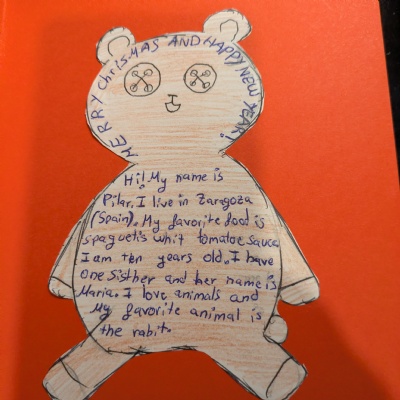 MERRY ChrisMAS AND HAPPY NEW YEAR!
Hi! My name is
Pilar. I live in Zaragoza
(Spain). My favorite food is
spaguetis whit tomatoe sauce
I am ten years old. I have
One Sisther and her name is
Maria. I love animals and
My favorite animal is
the rabit.